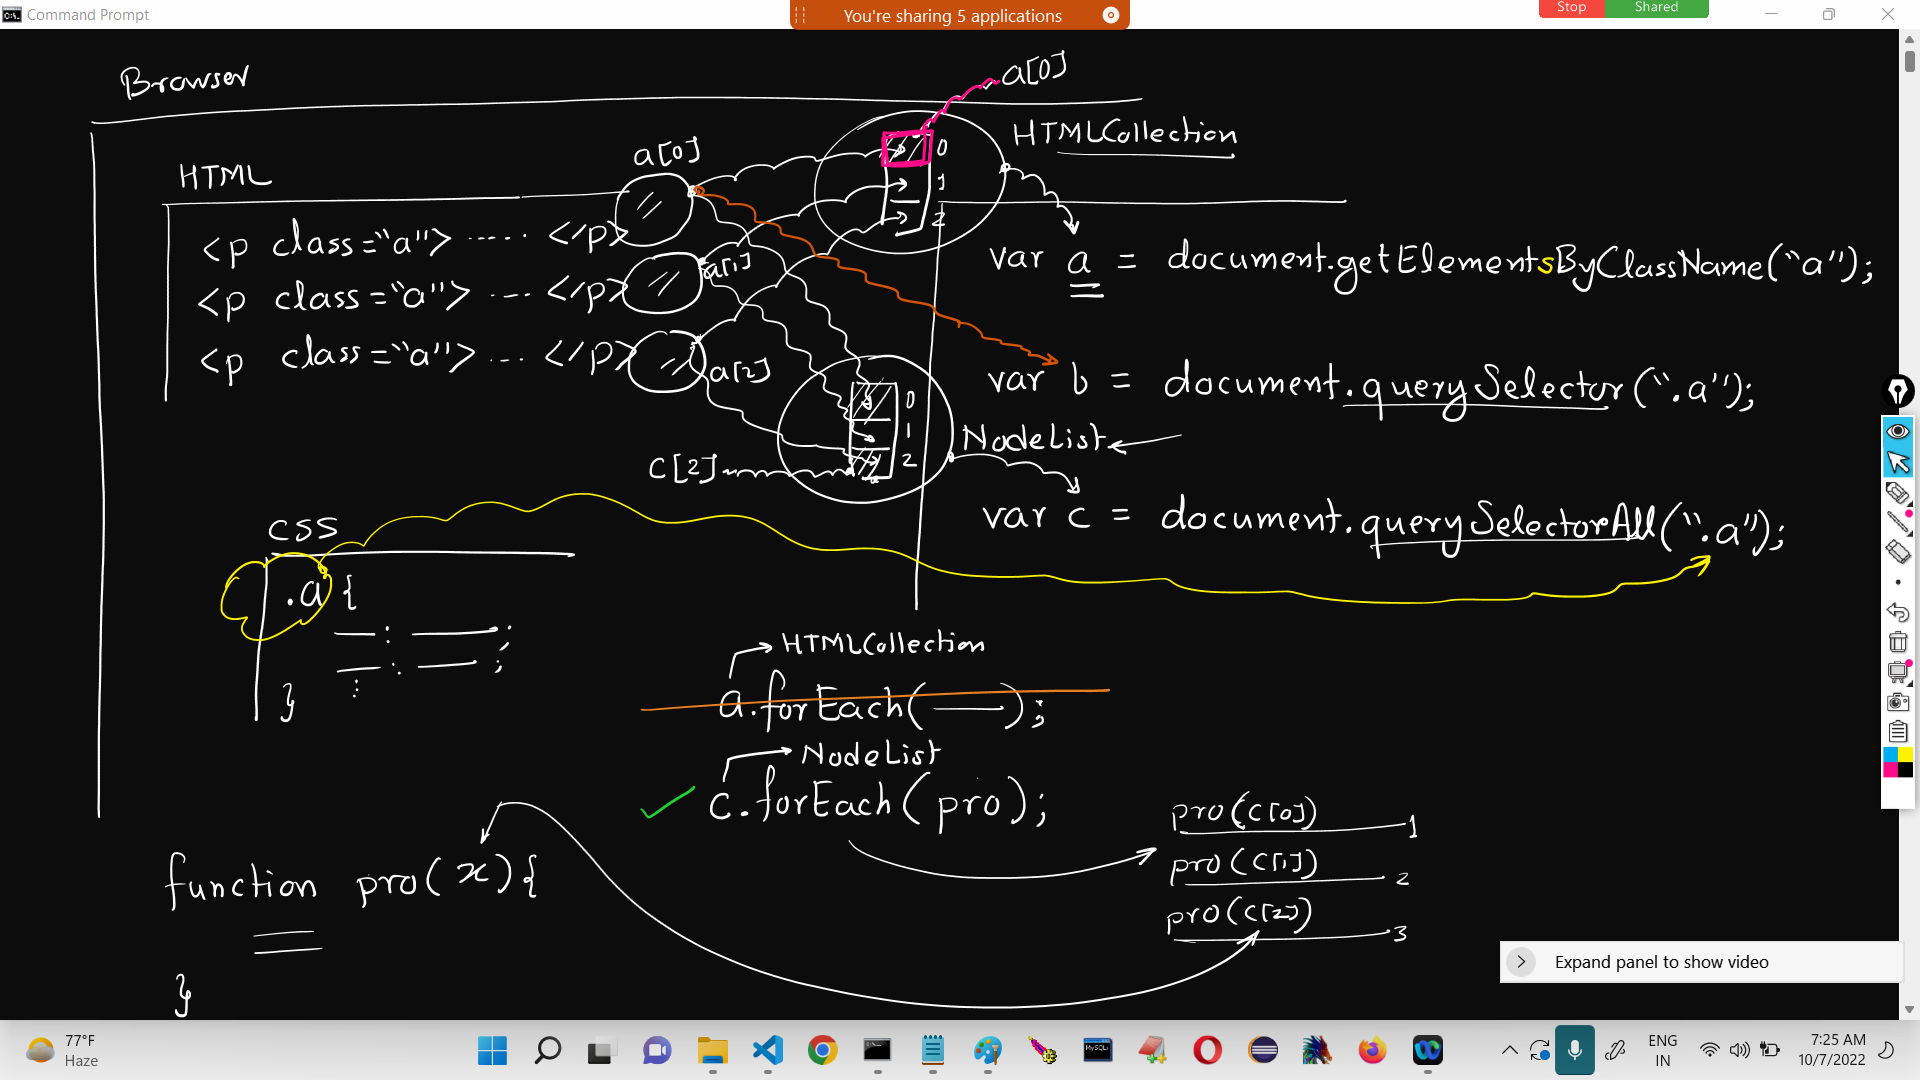 Command Prompt
You're sharing 5 applications
Stop Shared
Browser
a[0]
HTMLCollection
HTML
a[0]
0
1
2
<p class="a"> ..... </p>
<p class="a"> .... </p>
<p class="a"> ... </p>
a[1]
a[2]
var a = document.getElementsByClassName("a");
var b = document.querySelector(".a");
NodeList
0
1
2
c[2]
var c = document.querySelectorAll(".a");
CSS
.a {
— : —— ;
— : —— ;
:
}
HTMLCollection
a.forEach(——);
NodeList
c.forEach(pro);
pro(c[0]) 1
pro(c[1]) 2
pro(c[2]) 3
function pro(x){
}
Expand panel to show video
77°F
Haze
MySQL
ENG
IN
7:25 AM
10/7/2022